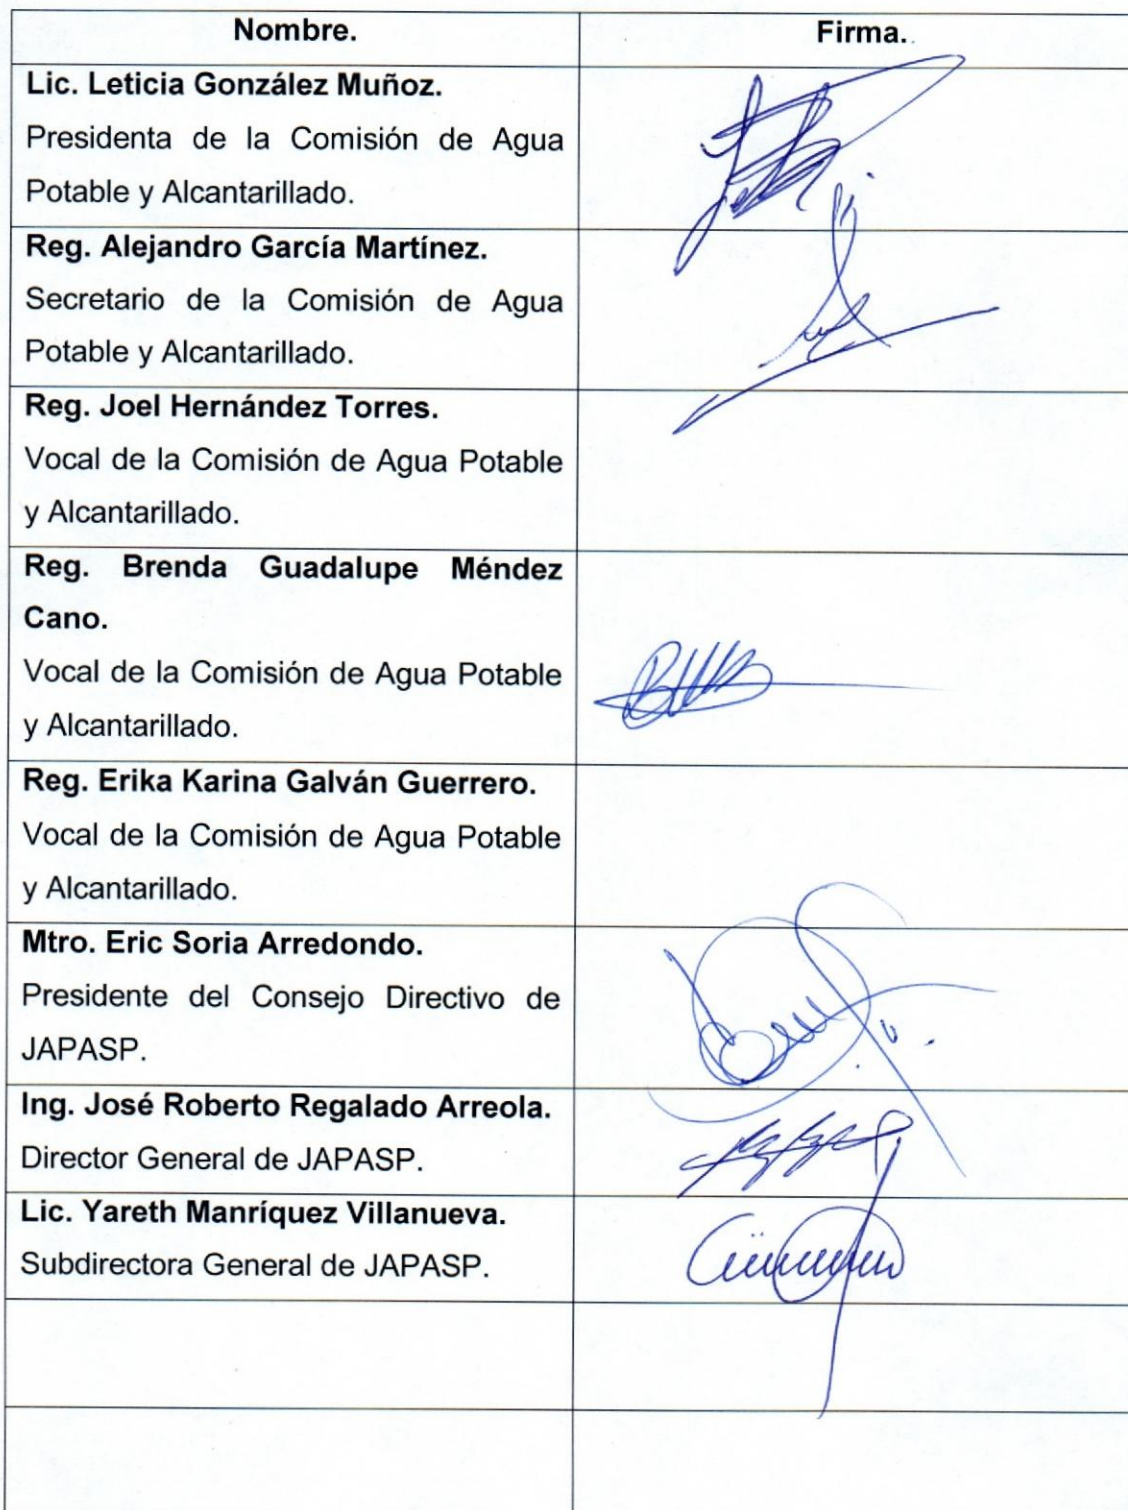 Nombre.
Firma.
Lic. Leticia González Muñoz.
Presidenta de la Comisión de Agua
Potable y Alcantarillado.
Reg. Alejandro García Martínez.
Secretario de la Comisión de Agua
Potable y Alcantarillado.
Reg. Joel Hernández Torres.
Vocal de la Comisión de Agua Potable
y Alcantarillado.
Reg. Brenda Guadalupe Méndez
Cano.
Vocal de la Comisión de Agua Potable
y Alcantarillado.
Reg. Erika Karina Galván Guerrero.
Vocal de la Comisión de Agua Potable
y Alcantarillado.
Mtro. Eric Soria Arredondo.
Presidente del Consejo Directivo de
JAPASP.
Ing. José Roberto Regalado Arreola.
Director General de JAPASP.
Lic. Yareth Manríquez Villanueva.
Subdirectora General de JAPASP.